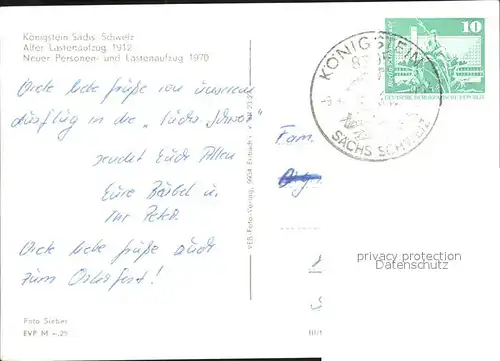 Königstein Sächs. Schweiz
Alter Lastenaufzug 1912
Neuer Personen- und Lastenaufzug 1970
Viele liebe Grüße von unserem
Ausflug in die „Sächs. Schweiz"
sendet Euch Allen
Eure Bärbel u.
Ihr Peter.
Viele liebe Grüße auch
zum Osterfest!
Foto Sieber
EVP M -.25
VEB Foto-Verlag, 9934 Erlbach
KÖNIGSTEIN
SÄCHS SCHWEIZ
10
DEUTSCHE DEMOKRATISCHE REPUBLIK
Fam.
privacy protection
Datenschutz
III/